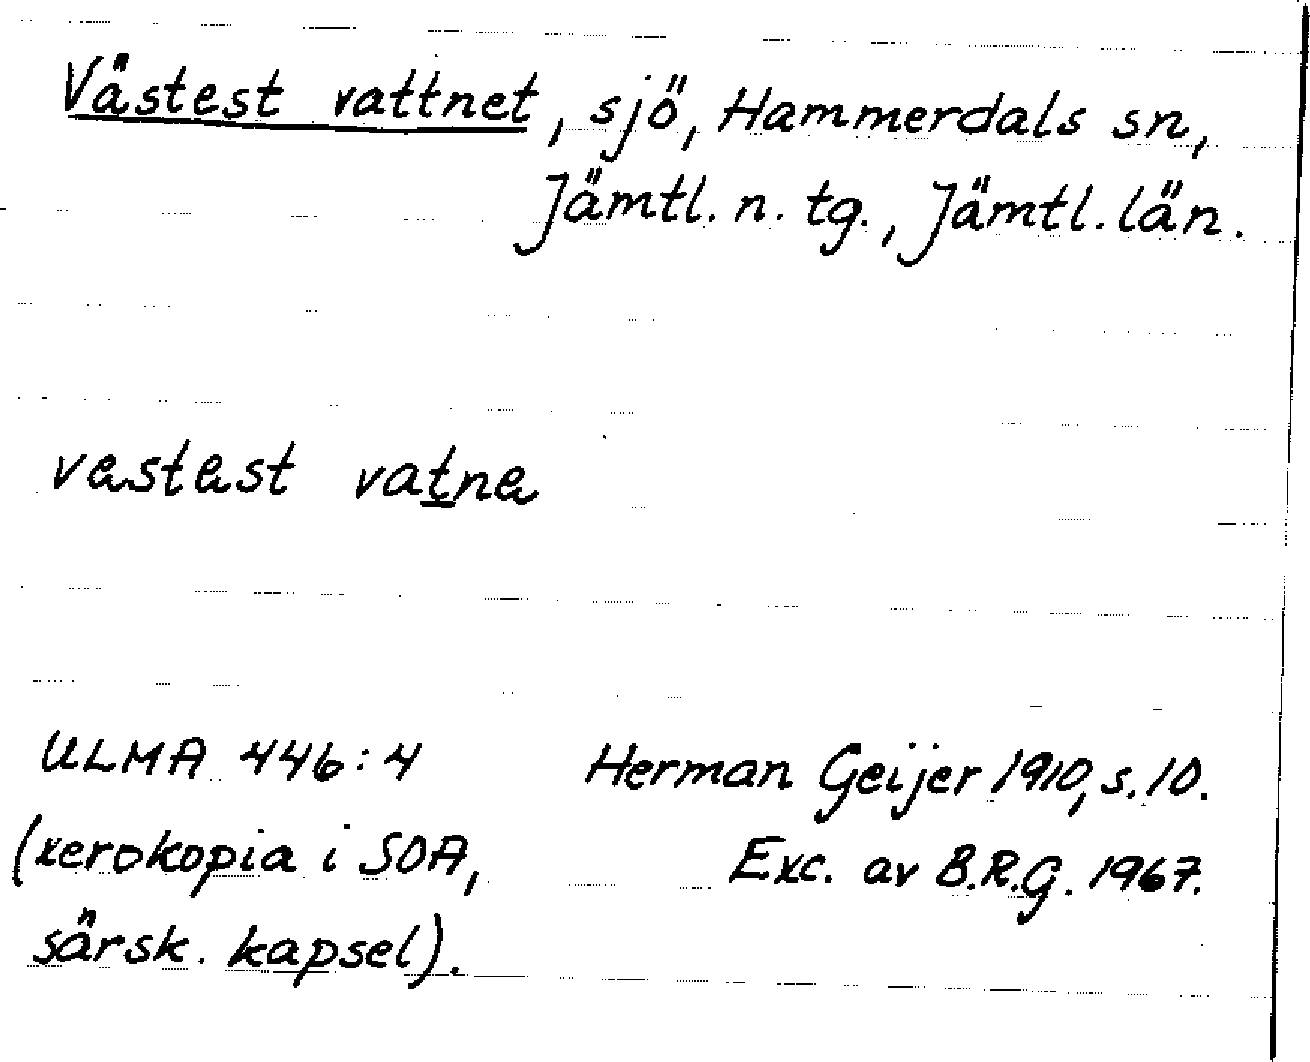 Västest vattnet, sjö, Hammerdals sn,
Jämtl. n. tg., Jämtl. län.
vastast vatna
ULMA 446:4 Herman Geijer 1910, s. 10.
(xerokopia i SOA, Exc. av B.R.G. 1967.
särsk. kapsel).